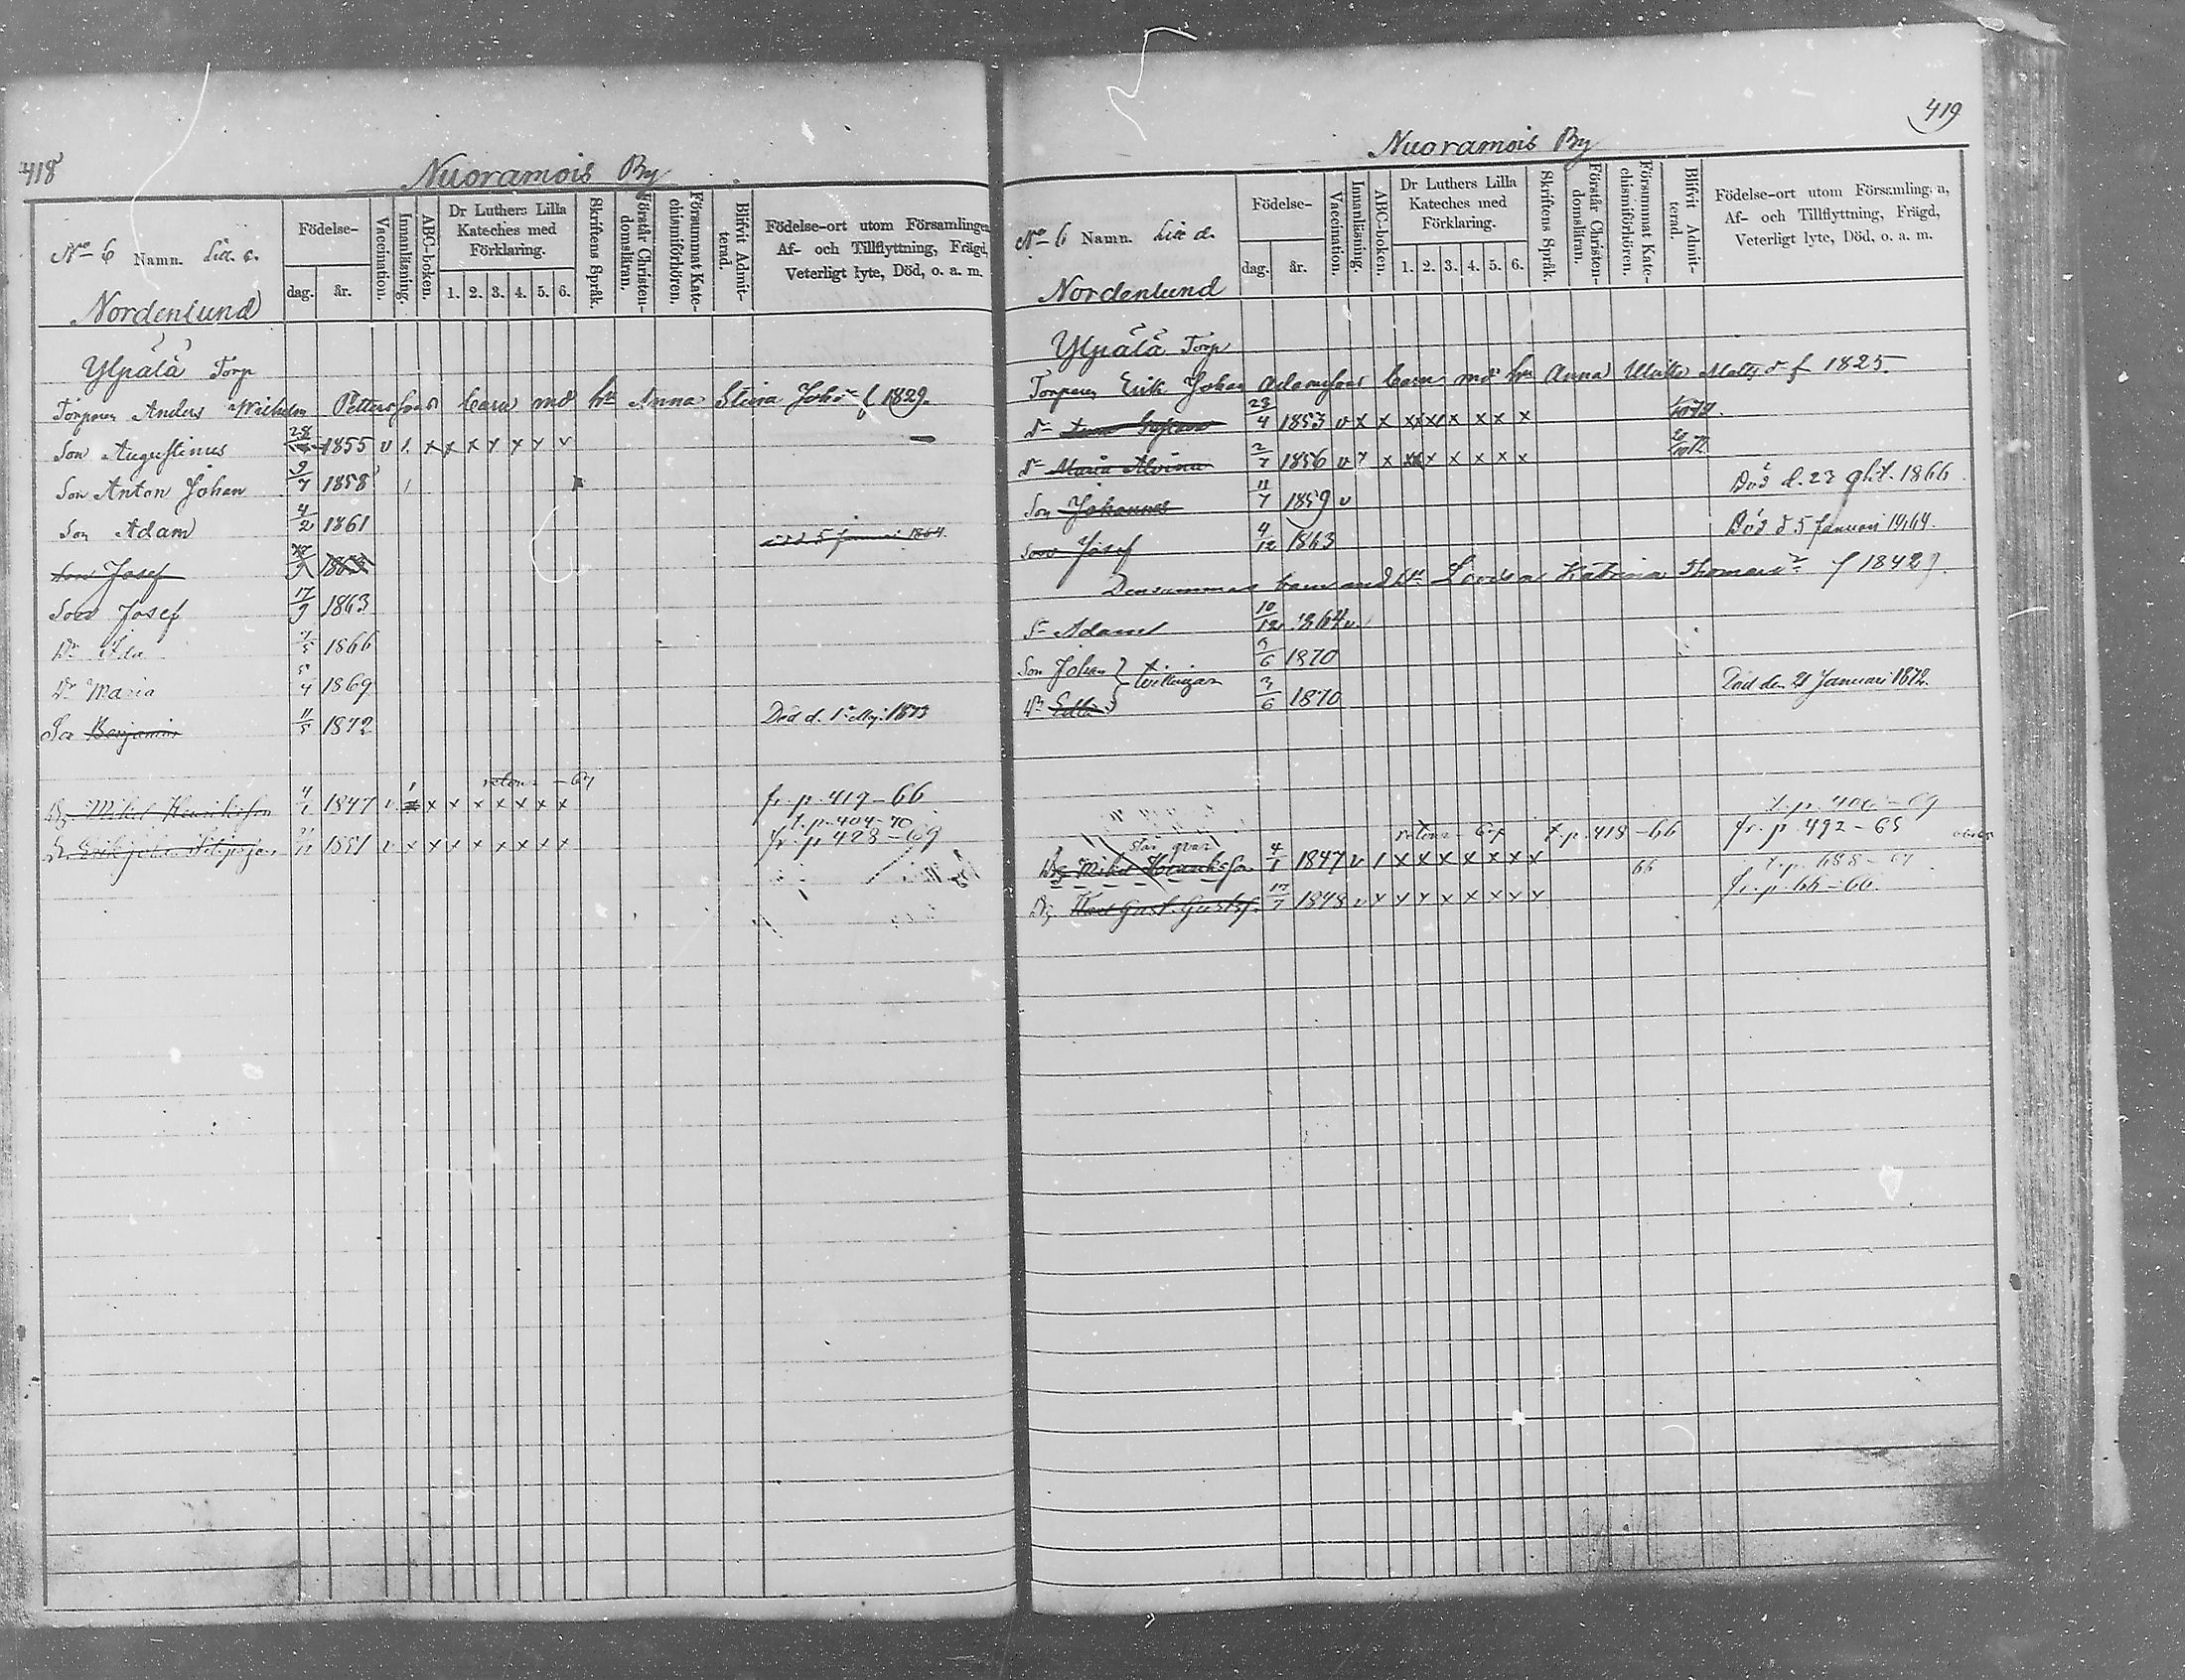 418
Nuoramois By
No 6 Namn. Litt. c.
Födelse-
dag. år.
Vaccination.
Innanläsning.
ABC-boken.
Dr Luthers Lilla Kateches med Förklaring.
1. 2. 3. 4. 5. 6.
Skriftens Språk.
Förstår Christendomsläran.
Försummat Katechismiförhören.
Blifvit Admitterad.
Födelse-ort utom Församlingen,
Af- och Tillflyttning, Frägd,
Veterligt lyte, Död, o. a. m.
Nordenlund
Ylpälä Torp
Torparen Anders Wilhelm Pettersons barn md hu Anna Stina Johsdr f 1829.
Son Augustinus 28 1855 v 1 x x x x x x v
Son Anton Johan 9/7 1858 1
Son Adam 4/2 1861
Son Josef 1863 död d. 5 Januari 1864.
Son Josef 17/9 1863
Dr Ida /5 1866
Dr Maria 5/4 1869
Son Benjamin 11/5 1872 Död d. 1 Maj 1873
retour - 67
Dg Mikel Henriksson 4/1 1847 v x x x x x x x fr. p. 419-66
t. p. 404-70
Dr Erik Johan Filipsson 1851 v x x x x x x x x fr. p. 428-69
419
Nuoramois By
No 6 Namn. Litt d.
Födelse-
dag. år.
Vaccination.
Innanläsning.
ABC-boken.
Dr Luthers Lilla Kateches med Förklaring.
1. 2. 3. 4. 5. 6.
Skriftens Språk.
Förstår Christendomsläran.
Försummat Katechismiförhören.
Blifvit Admitterad.
Födelse-ort utom Församlingen,
Af- och Tillflyttning, Frägd,
Veterligt lyte, Död, o. a. m.
Nordenlund
Ylpälä Torp
Torparen Erik Johan Adamsons barn md hu Anna Ulrika Matts dr f 1825
Dr 23/4 1853 v x x x x x x x x
Dr Maria Alvina 2/7 1856 v x x x x x x x
Son Johannes 11/7 1859 v Död d. 23 1866
Son Josef 4/12 1863 Död d 5 Januari 1864.
Densammes barn med hu Lovisa Katrina Thomasdr f 1842.
Sn Adam 10/12 1864 v
Son Johan 3/6 1870
tvillingar
Dr Edla 3/6 1870 Död den 21 Januari 1872.
står qvar retour - 67 t. p. 418-66 fr. p. 492-65
Dg Mikel Henriksson 4/1 1847 v 1 x x x x x x x 66
Dg Karl Gust. Gustfs. 17/7 1848 v x x x x x x x x fr. p. 66-66.